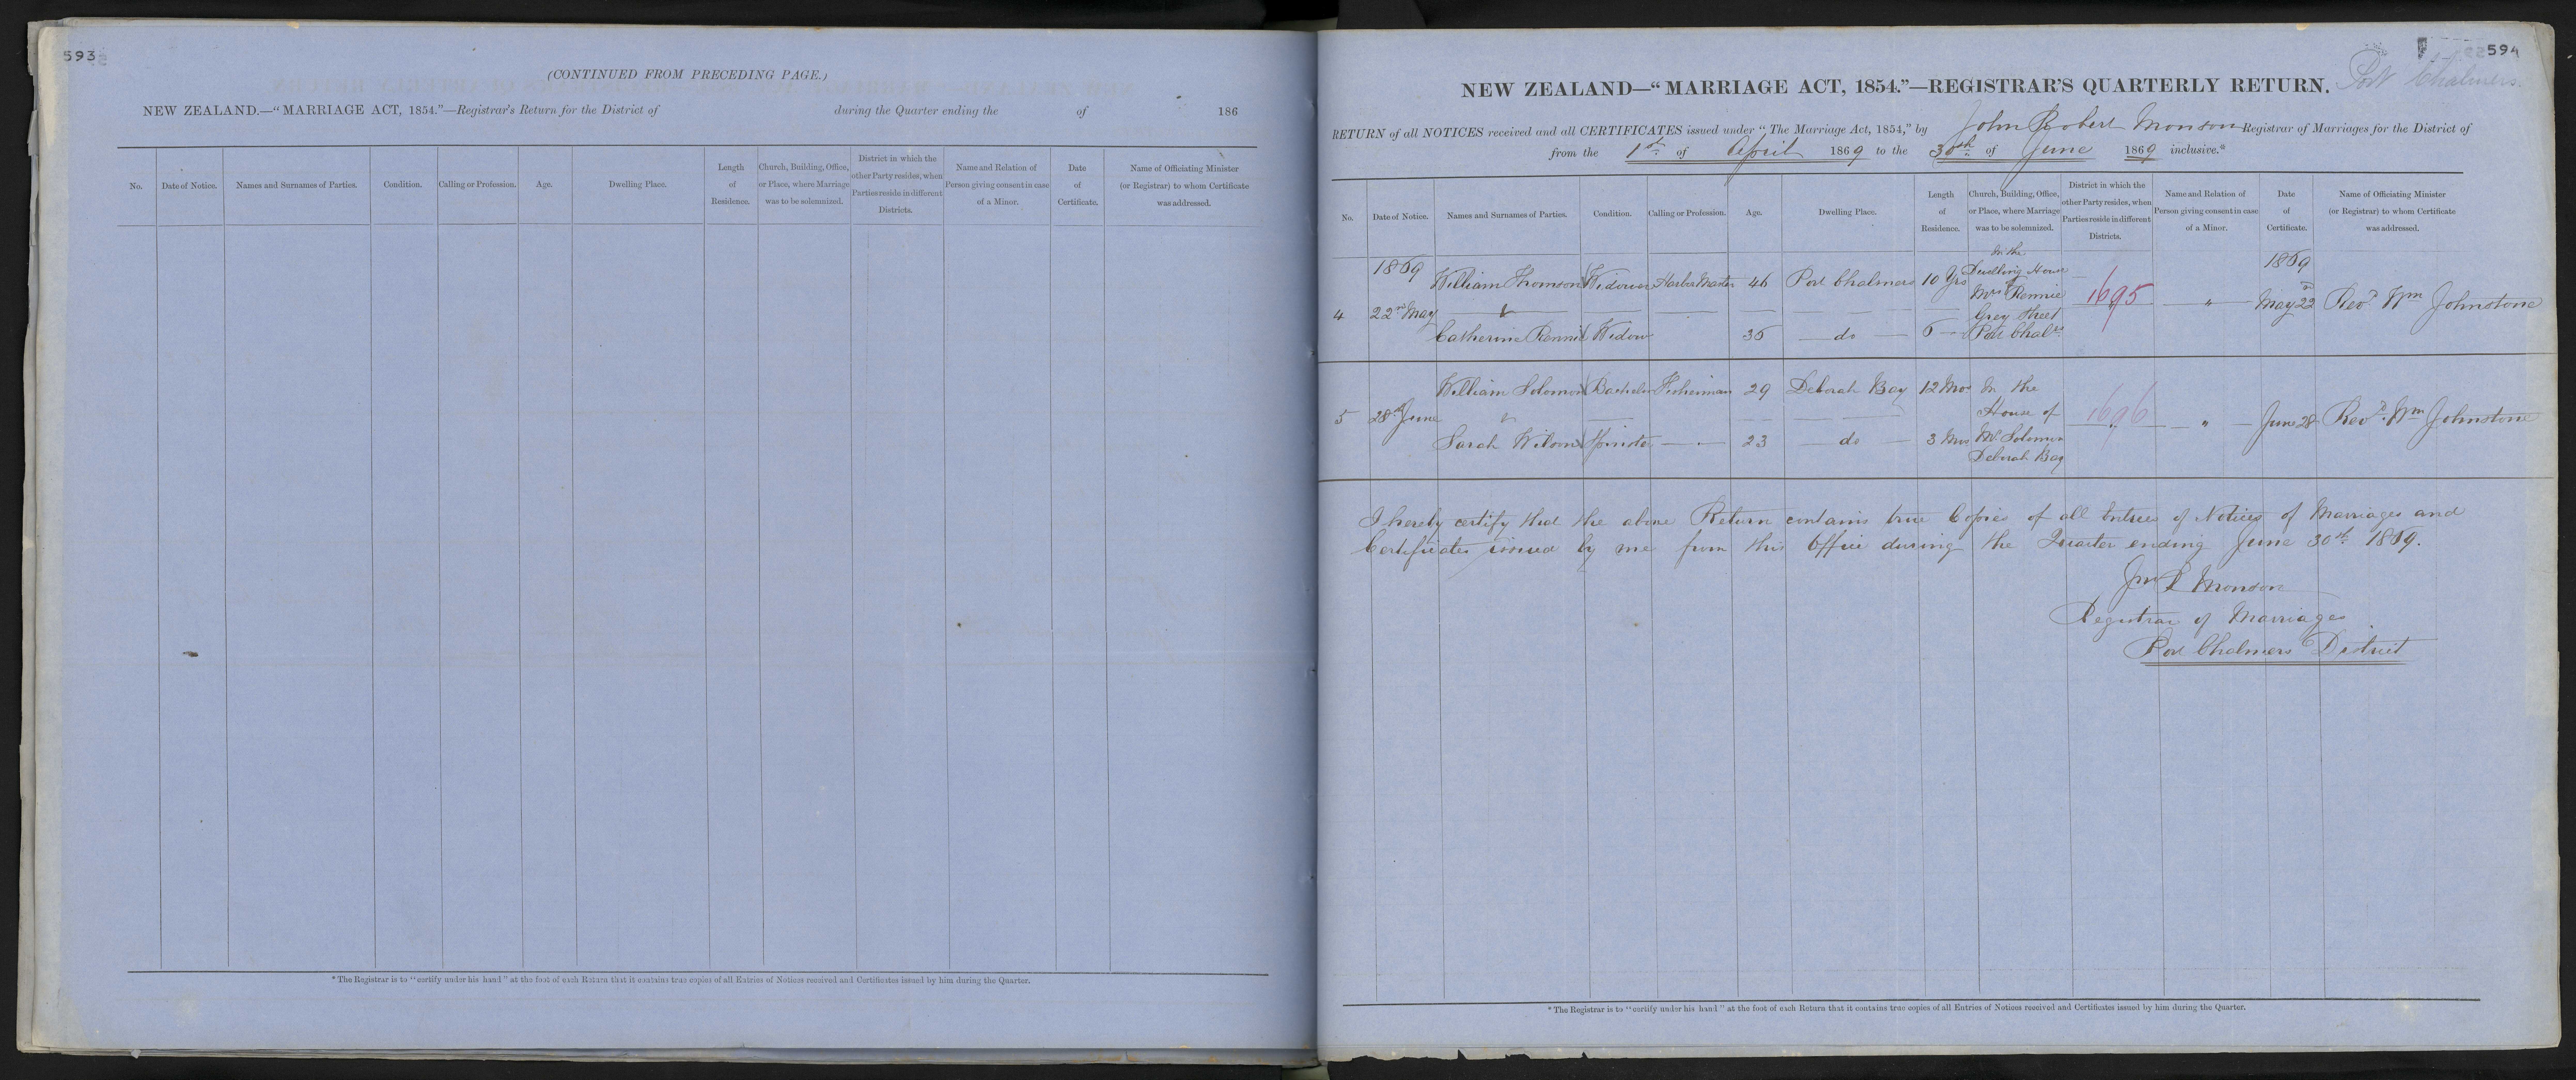 593
(CONTINUED FROM PRECEDING PAGE.)
NEW ZEALAND.—“MARRIAGE ACT, 1854.”—Registrar's Return for the District of during the Quarter ending the of 186
No. Date of Notice. Names and Surnames of Parties. Condition. Calling or Profession. Age. Dwelling Place. Length of Residence. Church, Building, Office, or Place, where Marriage was to be solemnized. District in which the other Party resides, when Parties reside in different Districts. Name and Relation of Person giving consent in case of a Minor. Date of Certificate. Name of Officiating Minister (or Registrar) to whom Certificate was addressed.
* The Registrar is to “certify under his hand” at the foot of each Return that it contains true copies of all Entries of Notices received and Certificates issued by him during the Quarter.
594
Port Chalmers.
NEW ZEALAND—“MARRIAGE ACT, 1854.”—REGISTRAR'S QUARTERLY RETURN.
RETURN of all NOTICES received and all CERTIFICATES issued under “The Marriage Act, 1854,” by John Robert Monson Registrar of Marriages for the District of
from the 1st of April 1869 to the 30th of June 1869 inclusive.*
No. Date of Notice. Names and Surnames of Parties. Condition. Calling or Profession. Age. Dwelling Place. Length of Residence. Church, Building, Office, or Place, where Marriage was to be solemnized. District in which the other Party resides, when Parties reside in different Districts. Name and Relation of Person giving consent in case of a Minor. Date of Certificate. Name of Officiating Minister (or Registrar) to whom Certificate was addressed.
1869 In the 1869
William Thomson Widower Harbor Master 46 Port Chalmers 10 Yrs Dwelling House of
4 22nd May Mrs Rennie 1695 " May 22nd Revd Wm Johnstone
Grey Street
Catherine Rennie Widow 35 do 6 Port Chalrs
William Solomon Bachelor Fisherman 29 Deborah Bay 12 Mos In the
5 28th June House of 1696 " June 28 Revd. Wm Johnstone
Sarah Wilson Spinster 23 do 3 Mos Mr Solomon
Deborah Bay
I hereby certify that the above Return contains true Copies of all Entries of Notices of Marriages and
Certificates issued by me from this Office during the Quarter ending June 30th 1869.
Jno R Monson
Registrar of Marriages
Port Chalmers District
* The Registrar is to “certify under his hand” at the foot of each Return that it contains true copies of all Entries of Notices received and Certificates issued by him during the Quarter.